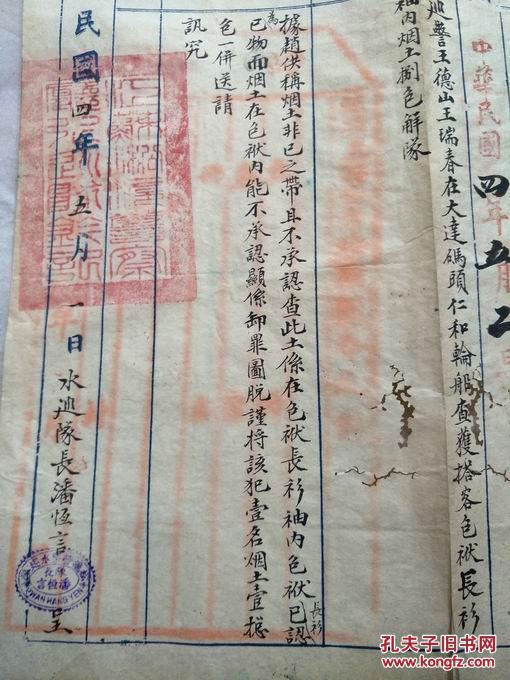 中華民國四年五月二
巡警王德山王瑞春在大達碼頭仁和輪船查獲搭客包袱長衫
袖内烟土捌包解隊
據趙供稱烟土非己之帶且不承認查此土係在包袱長衫袖内包袱長衫已認
為己物而烟土在包袱内能不承認顯係卸罪圖脱謹将該犯壹名烟土壹捴
包一併送請
訊究
民國四年五月一日水巡隊長潘恆言呈
PWAN HANG YEN
孔夫子旧书网
www.kongfz.com